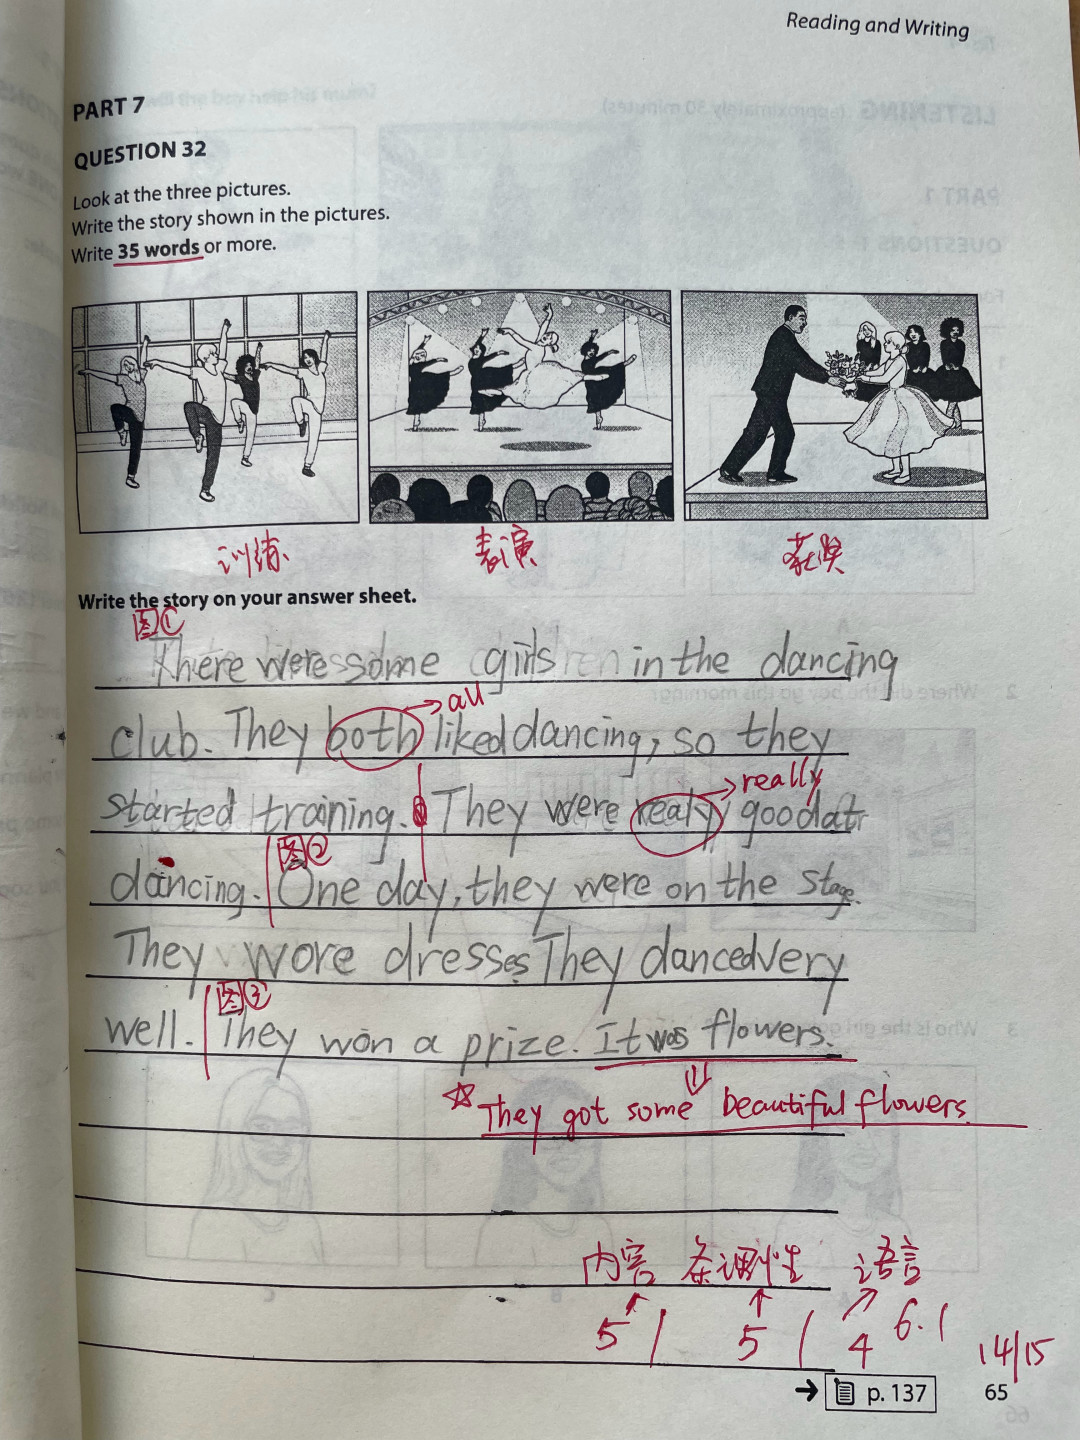 Reading and Writing
PART 7
QUESTION 32
Look at the three pictures.
Write the story shown in the pictures.
Write 35 words or more.
训练 表演 获奖
Write the story on your answer sheet.
图①
There were some girls in the dancing
all
club. They both liked dancing, so they
really
started training. They were realy good at
图②
dancing. One day, they were on the stage.
They wore dresses. They danced very
图③
well. They won a prize. It was flowers.
☆ They got some beautiful flowers.
内容 条理性 语言
5 5 4 6.1
14/15
→ p. 137 65